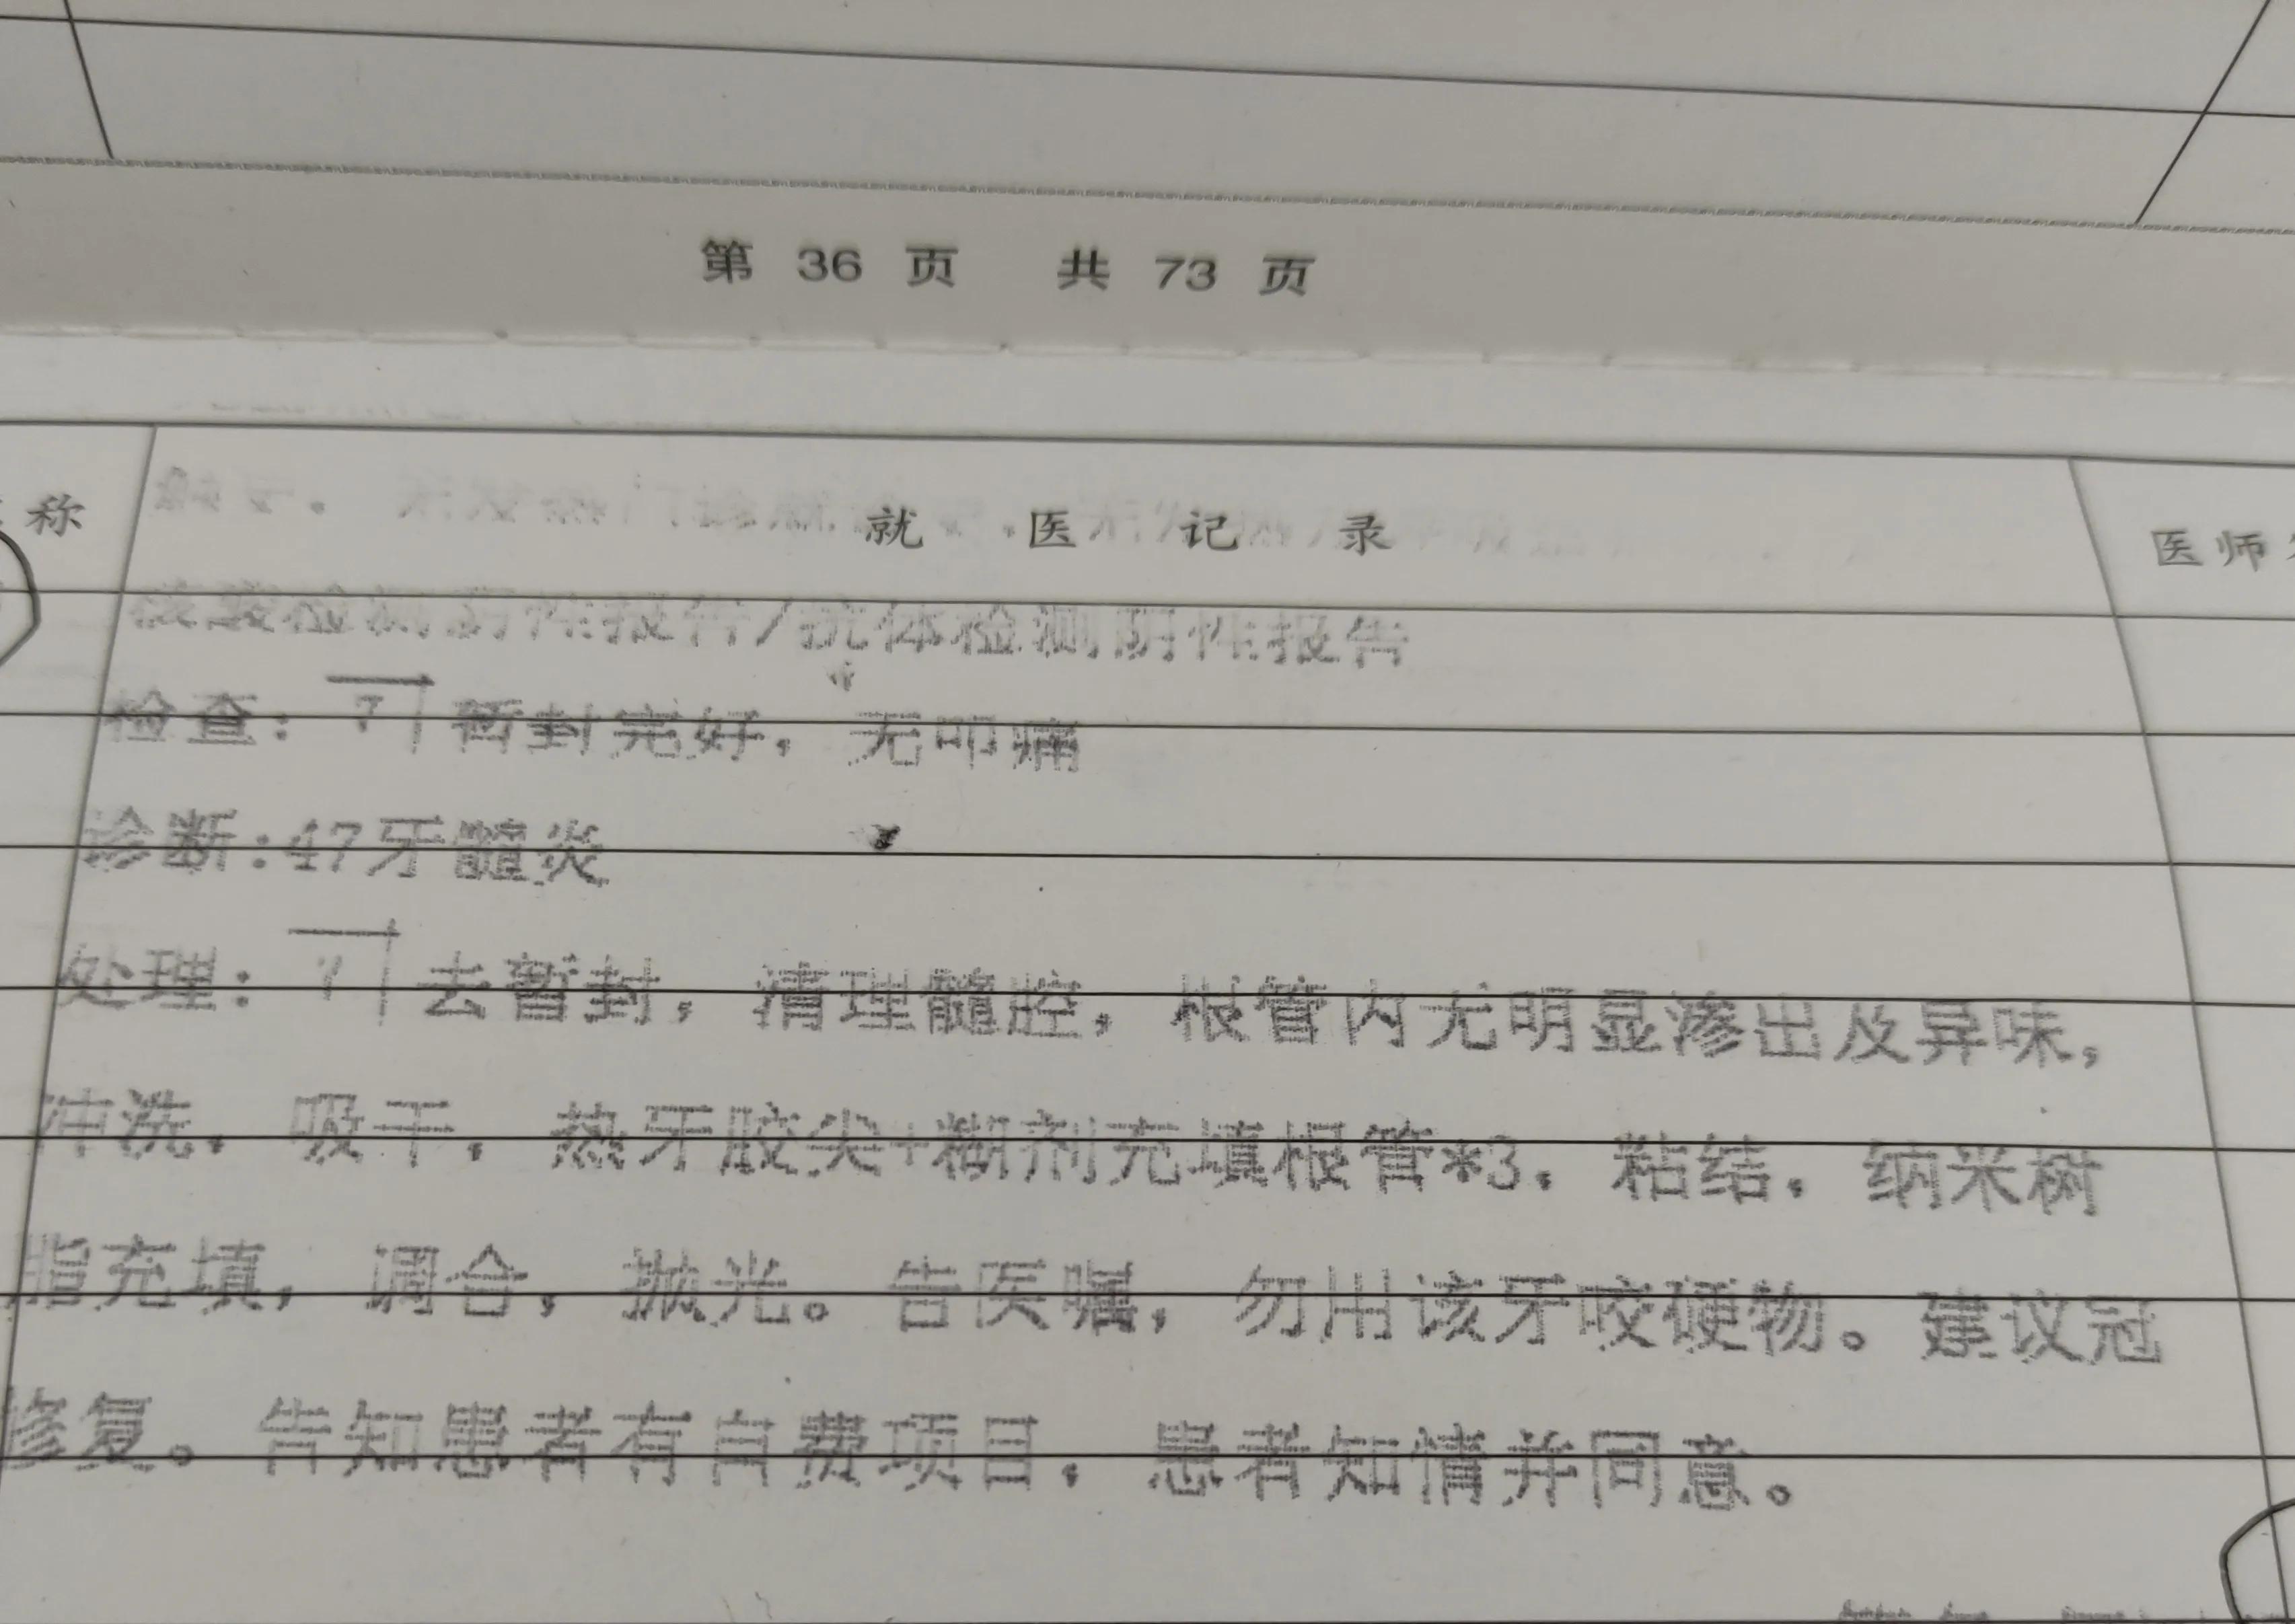 第 36 页 共 73 页
称 就 医 记 录 医师
核酸检测阴性报告/抗体检测阴性报告
检查: 7 暂封完好, 无叩痛
诊断:47牙髓炎
处理: 7 去暂封, 清理髓腔, 根管内无明显渗出及异味,
冲洗, 吸干, 热牙胶尖+糊剂充填根管*3, 粘结, 纳米树
脂充填, 调合, 抛光。告医嘱, 勿用该牙咬硬物。建议冠
修复。告知患者有自费项目, 患者知情并同意。